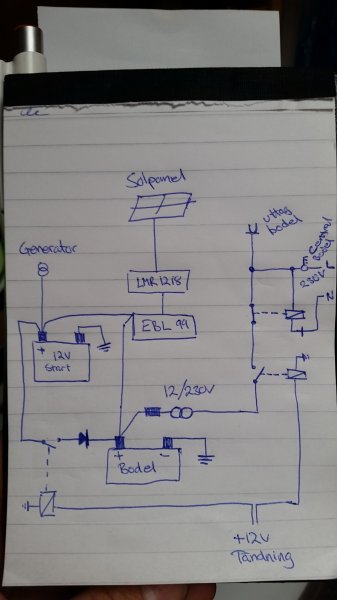 Solpanel
uttag
bodel
Generator
Central
Bodel
230V
N
LMR1218
EBL 99
+
12V
Start
12/230V
+ -
Bodel
+12V
Tändning